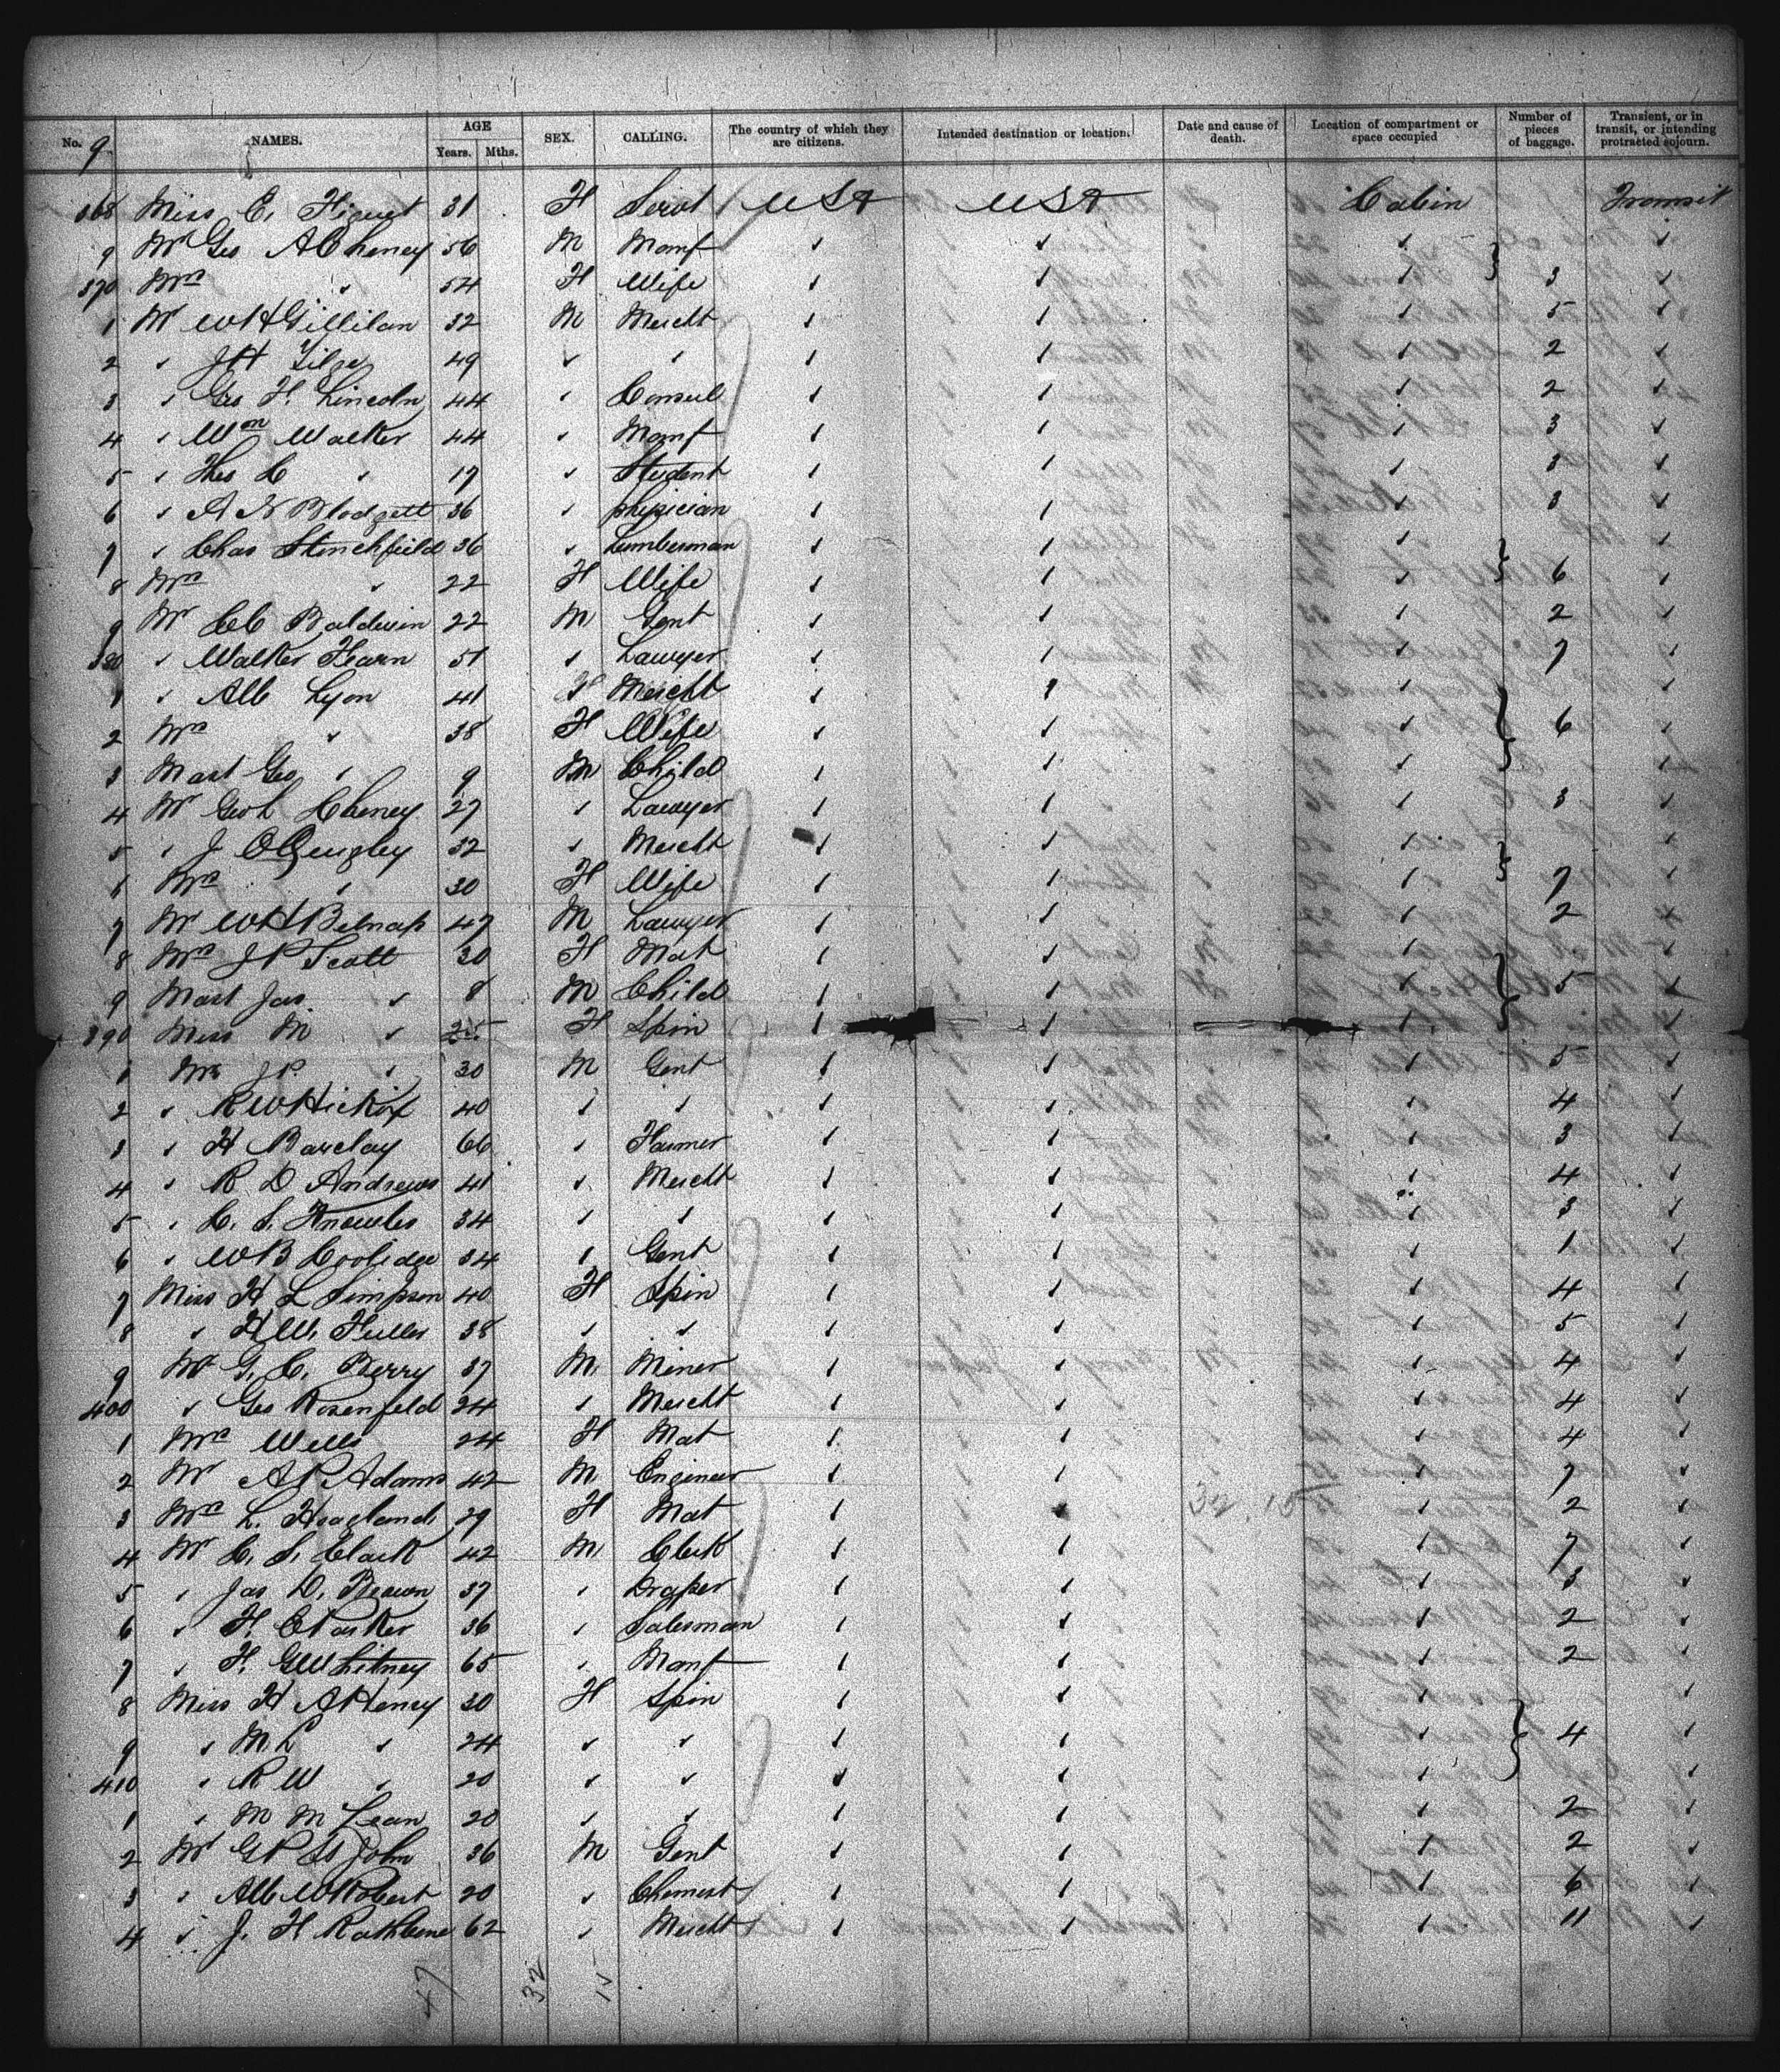 No. 9 NAMES. AGE Years. Mths. SEX. CALLING. The country of which they are citizens. Intended destination or location. Date and cause of death. Location of compartment or space occupied Number of pieces of baggage. Transient, or in transit, or intending protracted sojourn.
368 Miss E. 31 F Servt USA USA Cabin Transit
9 Mr Geo A Cheney 56 M Manf ✓ ✓ ✓ ✓
370 Mrs " 54 F Wife ✓ ✓ ✓ 3 ✓
1 Mr W H Gillilan 32 M Mercht ✓ ✓ ✓ 5 ✓
2 " J H 49 " " ✓ ✓ ✓ 2 ✓
3 " Geo F. Lincoln 44 " Consul ✓ ✓ ✓ 2 ✓
4 " Wm Walker 44 " Manf ✓ ✓ ✓ 3 ✓
5 " Thos C " 17 " Student ✓ ✓ ✓ 3 ✓
6 " A N Blodgett 36 " physician ✓ ✓ ✓ 3 ✓
7 " Chas Stinchfield 36 " Lumberman ✓ ✓ ✓ ✓
8 Mrs " 22 F Wife ✓ ✓ ✓ 6 ✓
9 Mr C C Baldwin 22 M Gent ✓ ✓ ✓ 2 ✓
380 " Walker Fearn 51 " Lawyer ✓ ✓ ✓ 7 ✓
1 " Alb Lyon 41 Mercht ✓ ✓ ✓ ✓
2 Mrs " 38 F Wife ✓ ✓ ✓ 6 ✓
3 Mast Geo " 9 M Child ✓ ✓ ✓ ✓
4 Mr Geo L Cheney 27 " Lawyer ✓ ✓ ✓ 3 ✓
5 " J 32 " Mercht ✓ ✓ ✓ ✓
6 Mrs " 30 F Wife ✓ ✓ ✓ 7 ✓
7 Mr W H Belnap 47 M Lawyer ✓ ✓ ✓ 2 ✓
8 Mrs J P Scott 30 F Mat ✓ ✓ ✓ ✓
9 Mast Jas " 8 M Child ✓ ✓ ✓ 5 ✓
390 Miss M " 25 F Spin ✓ ✓ ✓ ✓
1 Mr J P " 30 M Gent ✓ ✓ ✓ 5 ✓
2 " R W Hickox 40 " " ✓ ✓ ✓ 4 ✓
3 " H Barclay 66 " Farmer ✓ ✓ ✓ 3 ✓
4 " R D Andrews 41 " Mercht ✓ ✓ ✓ 4 ✓
5 " C. S. Knowles 34 " " ✓ ✓ ✓ 3 ✓
6 " W B Coolidge 34 " Gent ✓ ✓ ✓ 1 ✓
7 Miss H L Simpson 40 F Spin ✓ ✓ ✓ 4 ✓
8 " H W. Fuller 38 " " ✓ ✓ ✓ 5 ✓
9 Mr G. C. Berry 37 M. Miner ✓ ✓ ✓ 4 ✓
400 " Geo Rosenfeld 24 " Mercht ✓ ✓ ✓ 4 ✓
1 Mrs Wells 24 F Mat ✓ ✓ ✓ 4 ✓
2 Mr A P Adams 42 M. Engineer ✓ ✓ ✓ 7 ✓
3 Mrs L. Hoagland 29 F Mat ✓ ✓ 32 15 ✓ 2 ✓
4 Mr C. S. Clark 42 M Clerk ✓ ✓ ✓ 7 ✓
5 " Jas D. Brown 37 " Draper ✓ ✓ ✓ 3 ✓
6 " F. C Parker 36 " Salesman ✓ ✓ ✓ 2 ✓
7 " F. G Whitney 65 " Manf ✓ ✓ ✓ 2 ✓
8 Miss H A 30 F Spin ✓ ✓ ✓ ✓
9 " M. L " 24 " " ✓ ✓ ✓ 4 ✓
410 " R W " 20 " " ✓ ✓ ✓ ✓
1 " M M 20 " " ✓ ✓ ✓ 2 ✓
2 Mr G P St John 36 M Gent ✓ ✓ ✓ 2 ✓
3 " Alb W Robert 20 " Chemist ✓ ✓ ✓ 6 ✓
4 " J. H Rathbone 62 " Mercht ✓ ✓ ✓ 11 ✓
47 32 15